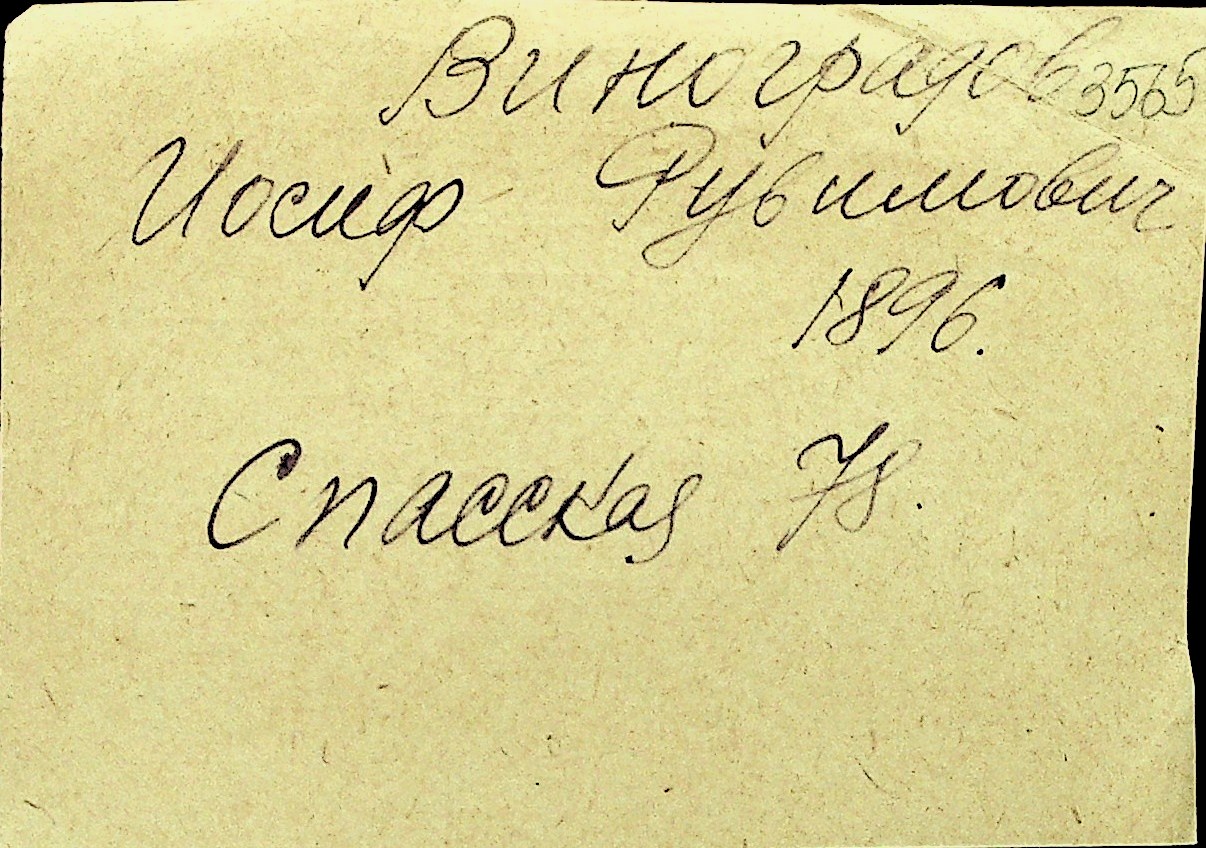 Виноградов 3565
Иосиф Рувимович
1896.
Спасская 78.